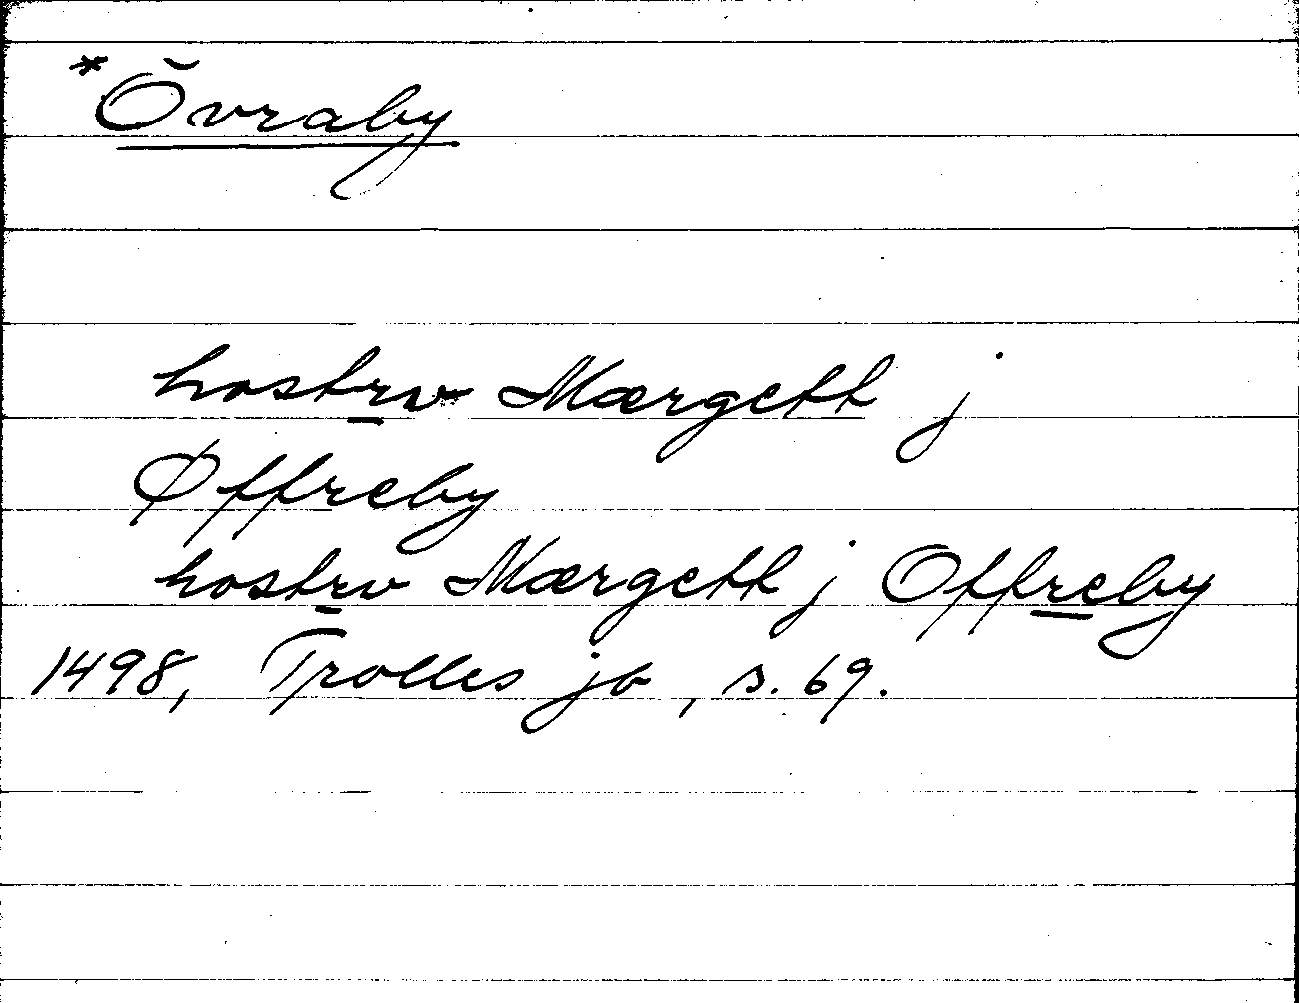 *Övraby
hostrv Mærgett j
Øffreby
hostrv Mærgett j Offreby
1498, Trolles jb, s. 69.